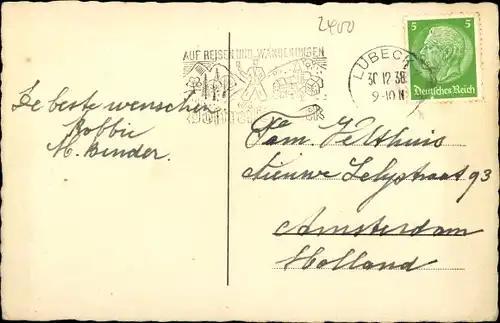 2400
AUF REISEN UND WANDERUNGEN
LÜBECK
30.12.38
9-10
5 5
Deutsches Reich
De beste wenschen
Robbie
M. Binder.
Fam. Velthuis
Nieuwe Lelystraat 93
Amsterdam
Holland